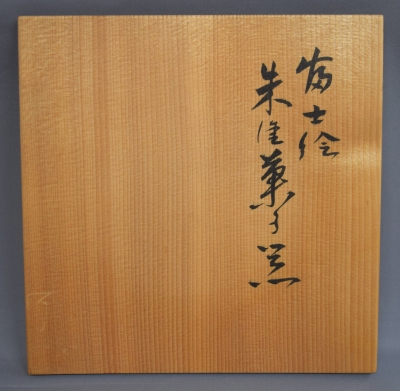 富士絵
朱塗菓子器